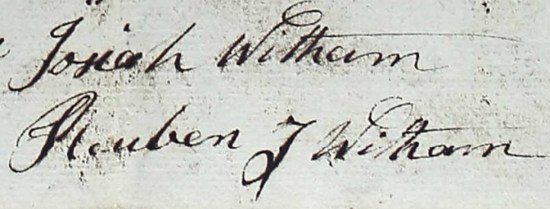 Josiah Witham
Reuben J Witham